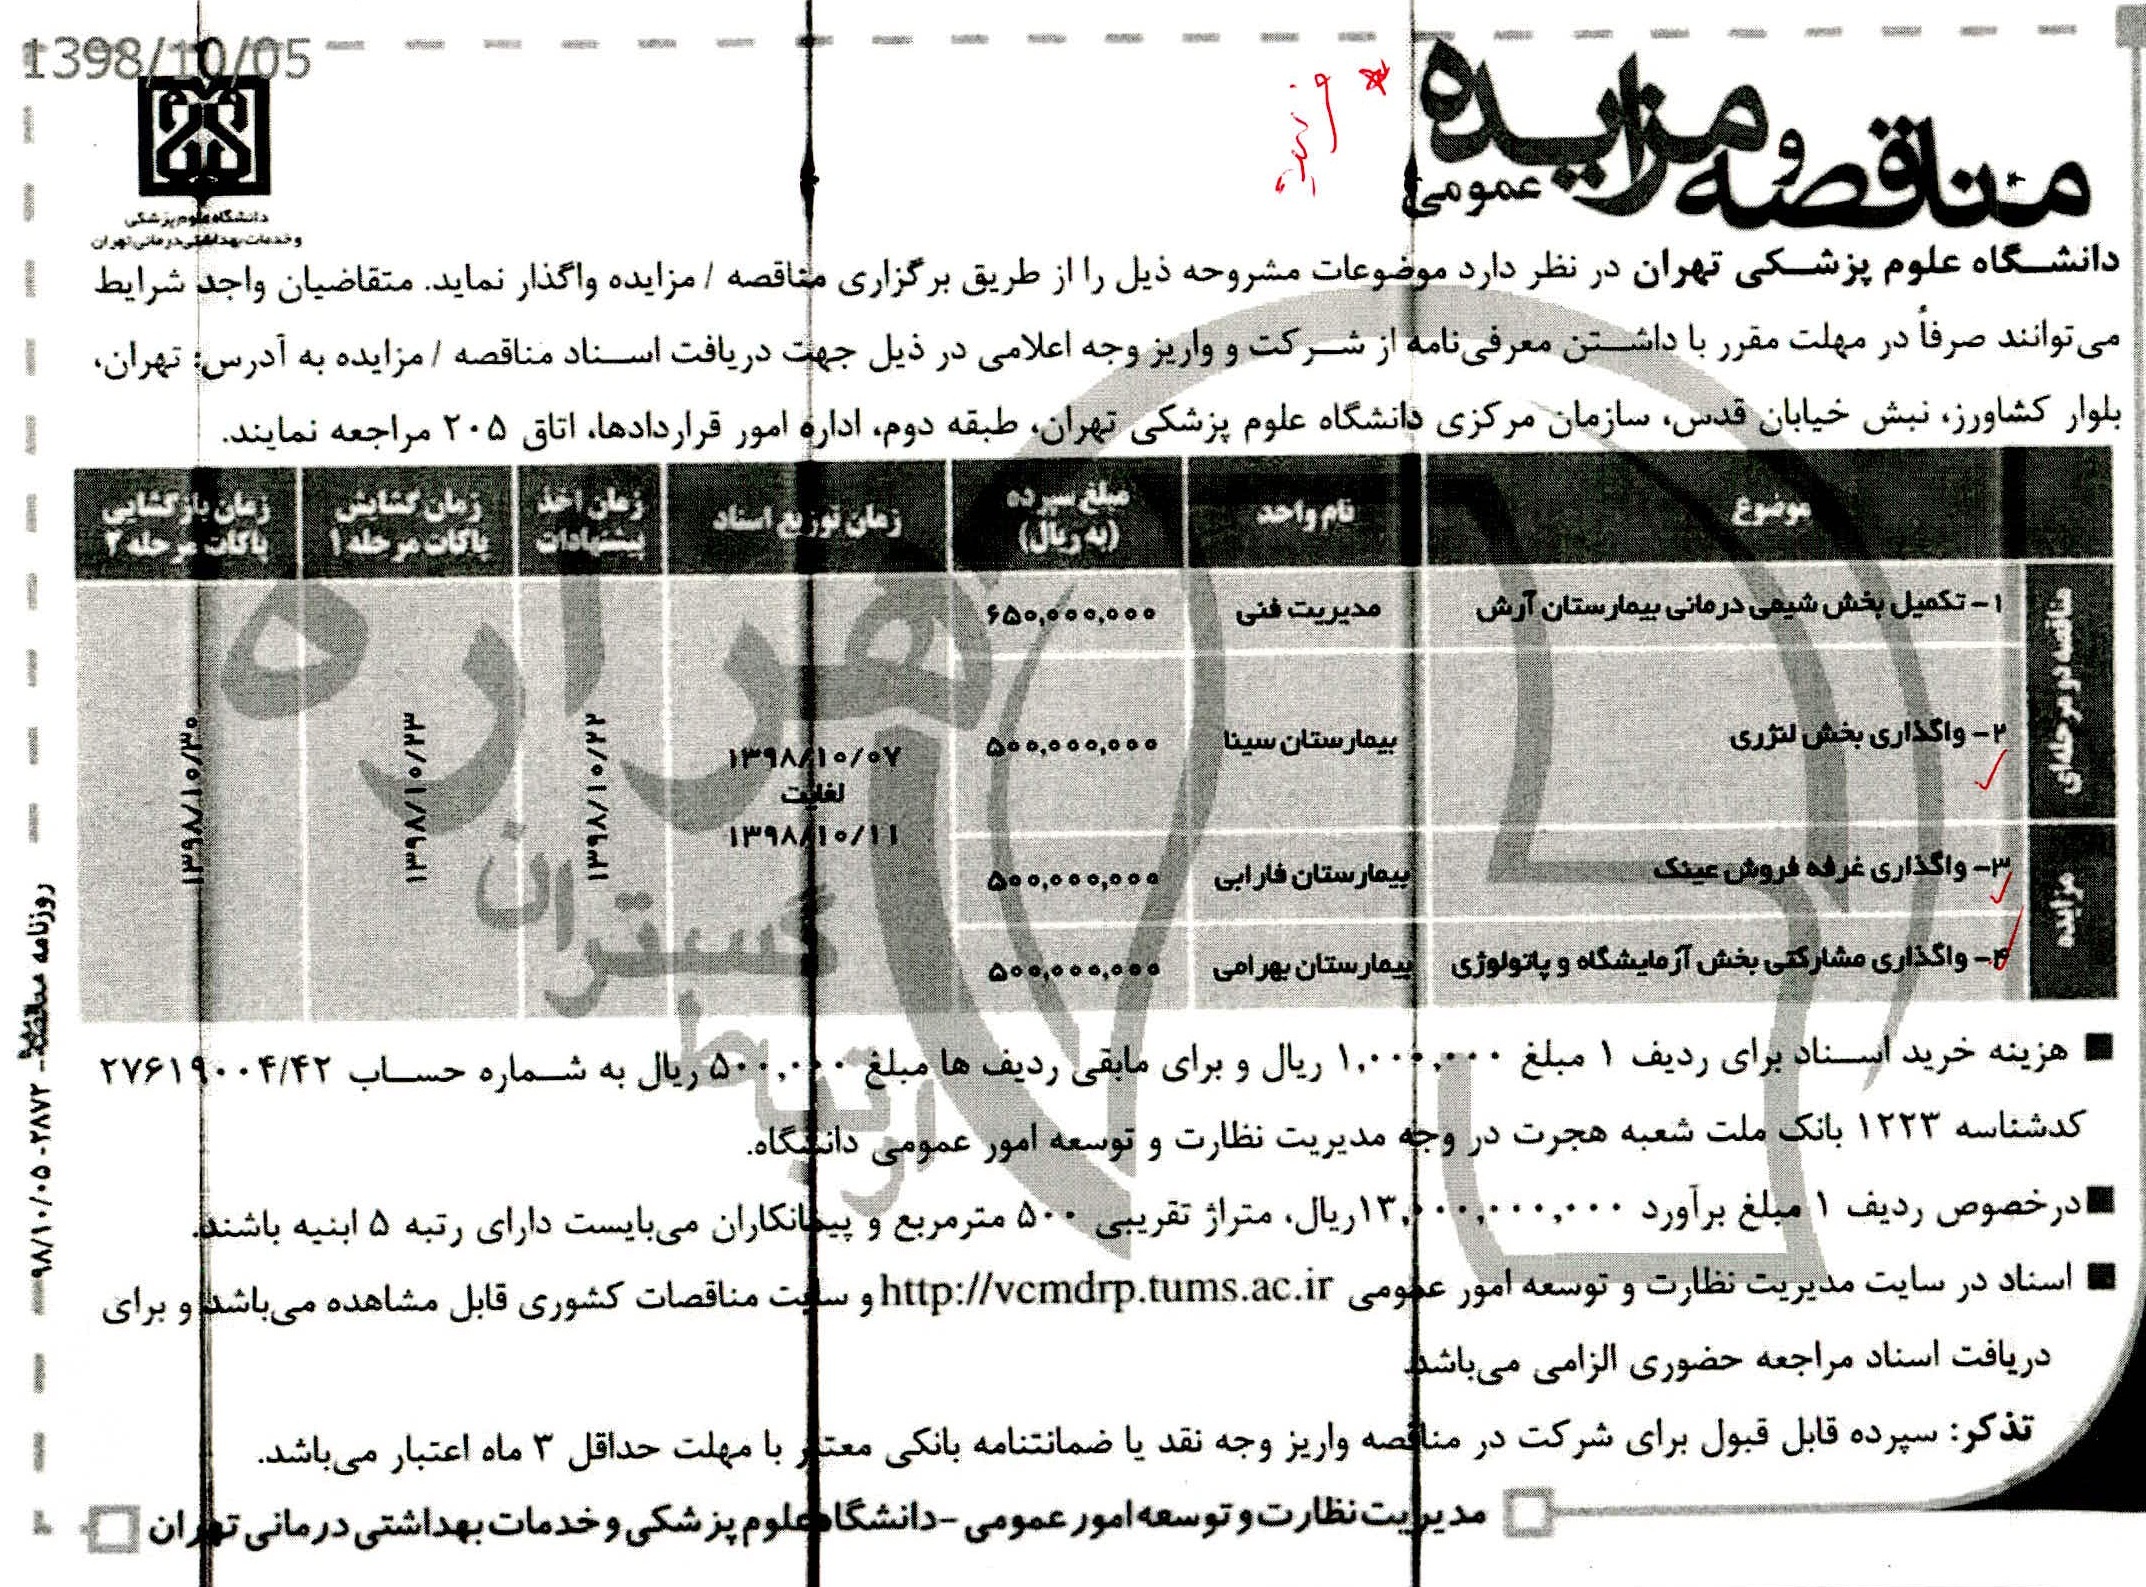 1398/10/05
مناقصه و مزایده
عمومی
دانشگاه علوم پزشکی
و خدمات بهداشتی درمانی تهران
دانشگاه علوم پزشکی تهران در نظر دارد موضوعات مشروحه ذیل را از طریق برگزاری مناقصه / مزایده واگذار نماید. متقاضیان واجد شرایط
می‌توانند صرفاً در مهلت مقرر با داشتن معرفی‌نامه از شرکت و واریز وجه اعلامی در ذیل جهت دریافت اسناد مناقصه / مزایده به آدرس: تهران،
بلوار کشاورز، نبش خیابان قدس، سازمان مرکزی دانشگاه علوم پزشکی تهران، طبقه دوم، اداره امور قراردادها، اتاق ۲۰۵ مراجعه نمایند.
موضوع | نام واحد | مبلغ سپرده (به ریال) | زمان توزیع اسناد | زمان اخذ پیشنهادات | زمان گشایش پاکات مرحله ۱ | زمان بازگشایی پاکات مرحله ۲
مناقصه دو مرحله‌ای
۱- تکمیل بخش شیمی درمانی بیمارستان آرش | مدیریت فنی | ۶۵۰,۰۰۰,۰۰۰
۲- واگذاری بخش لنژری | بیمارستان سینا | ۵۰۰,۰۰۰,۰۰۰
مزایده
۳- واگذاری غرفه فروش عینک | بیمارستان فارابی | ۵۰۰,۰۰۰,۰۰۰
۴- واگذاری مشارکتی بخش آزمایشگاه و پاتولوژی | بیمارستان بهرامی | ۵۰۰,۰۰۰,۰۰۰
۱۳۹۸/۱۰/۰۷
لغایت
۱۳۹۸/۱۰/۱۱
۱۳۹۸/۱۰/۲۲
۱۳۹۸/۱۰/۲۳
۱۳۹۸/۱۰/۳۰
هزاره
گستران
ارتباط
هزینه خرید اسناد برای ردیف ۱ مبلغ ۱,۰۰۰,۰۰۰ ریال و برای مابقی ردیف ها مبلغ ۵۰۰,۰۰۰ ریال به شماره حساب ۲۷۶۱۹۰۰۴/۴۲
کدشناسه ۱۲۲۳ بانک ملت شعبه هجرت در وجه مدیریت نظارت و توسعه امور عمومی دانشگاه.
درخصوص ردیف ۱ مبلغ برآورد ۱۳,۰۰۰,۰۰۰,۰۰۰ریال، متراژ تقریبی ۵۰۰ مترمربع و پیمانکاران می‌بایست دارای رتبه ۵ ابنیه باشند.
اسناد در سایت مدیریت نظارت و توسعه امور عمومی http://vcmdrp.tums.ac.ir و سایت مناقصات کشوری قابل مشاهده می‌باشد و برای
دریافت اسناد مراجعه حضوری الزامی می‌باشد.
تذکر: سپرده قابل قبول برای شرکت در مناقصه واریز وجه نقد یا ضمانتنامه بانکی معتبر با مهلت حداقل ۳ ماه اعتبار می‌باشد.
مدیریت نظارت و توسعه امور عمومی - دانشگاه علوم پزشکی و خدمات بهداشتی درمانی تهران
روزنامه مناقصه - ۲۸۷۲- ۹۸/۱۰/۰۵